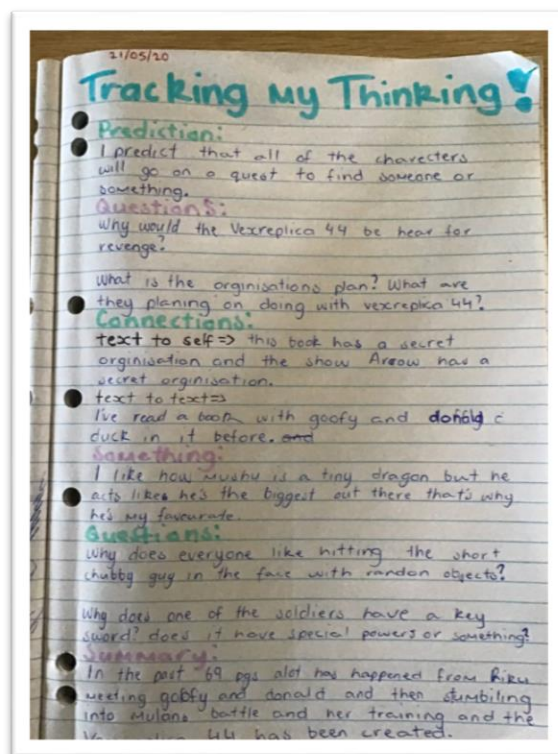 21/05/20
Tracking My Thinking!
Prediction:
I predict that all of the charecters
will go on a quest to find someone or
something.
Questions:
Why would the Vexreplica 44 be hear for
revenge?
What is the orginisations plan? What are
they planing on doing with vexreplica 44?
Connections:
text to self=> this book has a secret
orginisation and the show Arrow has a
secret orginisation.
text to text=>
I've read a book with goofy and donald
duck in it before. and
Something:
I like how Mushu is a tiny dragon but he
acts likes he's the biggest out there that's why
he's my favourate.
Questions:
Why does everyone like hitting the short
chubby guy in the face with randon objects?
Why does one of the soldiers have a key
sword? does it have special powers or something?
Summary:
In the past 69 pgs alot has happened from Riku
meeting goofy and donald and then stumbiling
into Mulans battle and her training and the
44 has been created.